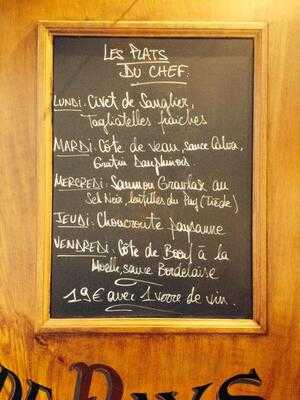 LES PLATS
DU CHEF:
LUNDI: Civet de Sanglier,
Tagliatelles fraîches
MARDI: Côte de veau, sauce Calva,
Gratin Dauphinois
MERCREDI: Saumon Gravlax au
Sel Noir, lentilles du Puy (Tiède)
JEUDI: Choucroute paysanne
VENDREDI: Côte de Boeuf à la
Moelle, sauce Bordelaise
19€ avec 1 verre de vin.
DE PAYS